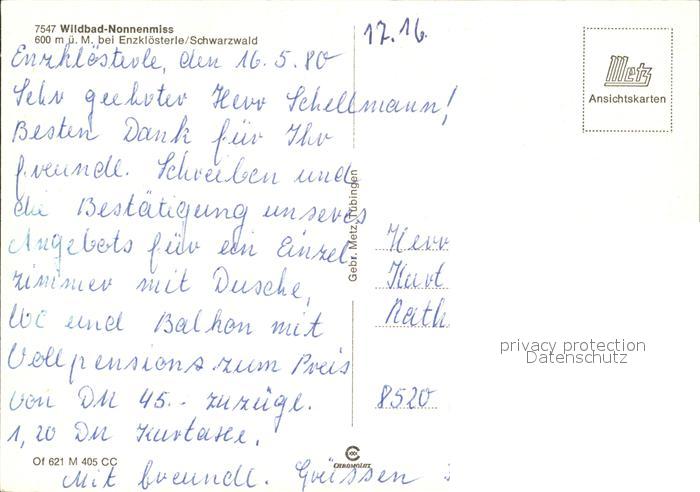 7547 Wildbad-Nonnenmiss
600 m ü. M. bei Enzklösterle/Schwarzwald
17.16.
Enzklösterle, den 16.5.80
Sehr geehrter Herr Schellmann!
Besten Dank für Ihr
freundl. Schreiben und
die Bestätigung unseres
Angebots für ein Einzel
zimmer mit Dusche,
WC und Balkon mit
Vollpensionszum Preis
von DM 45.- zuzügl.
1,20 DM Kurtaxe.
Mit freundl. Grüssen
Of 621 M 405 CC
CHROMOLUX
Gebr. Metz, Tübingen
Metz
Ansichtskarten
Herr
Kurt
Rath
8520
privacy protection
Datenschutz